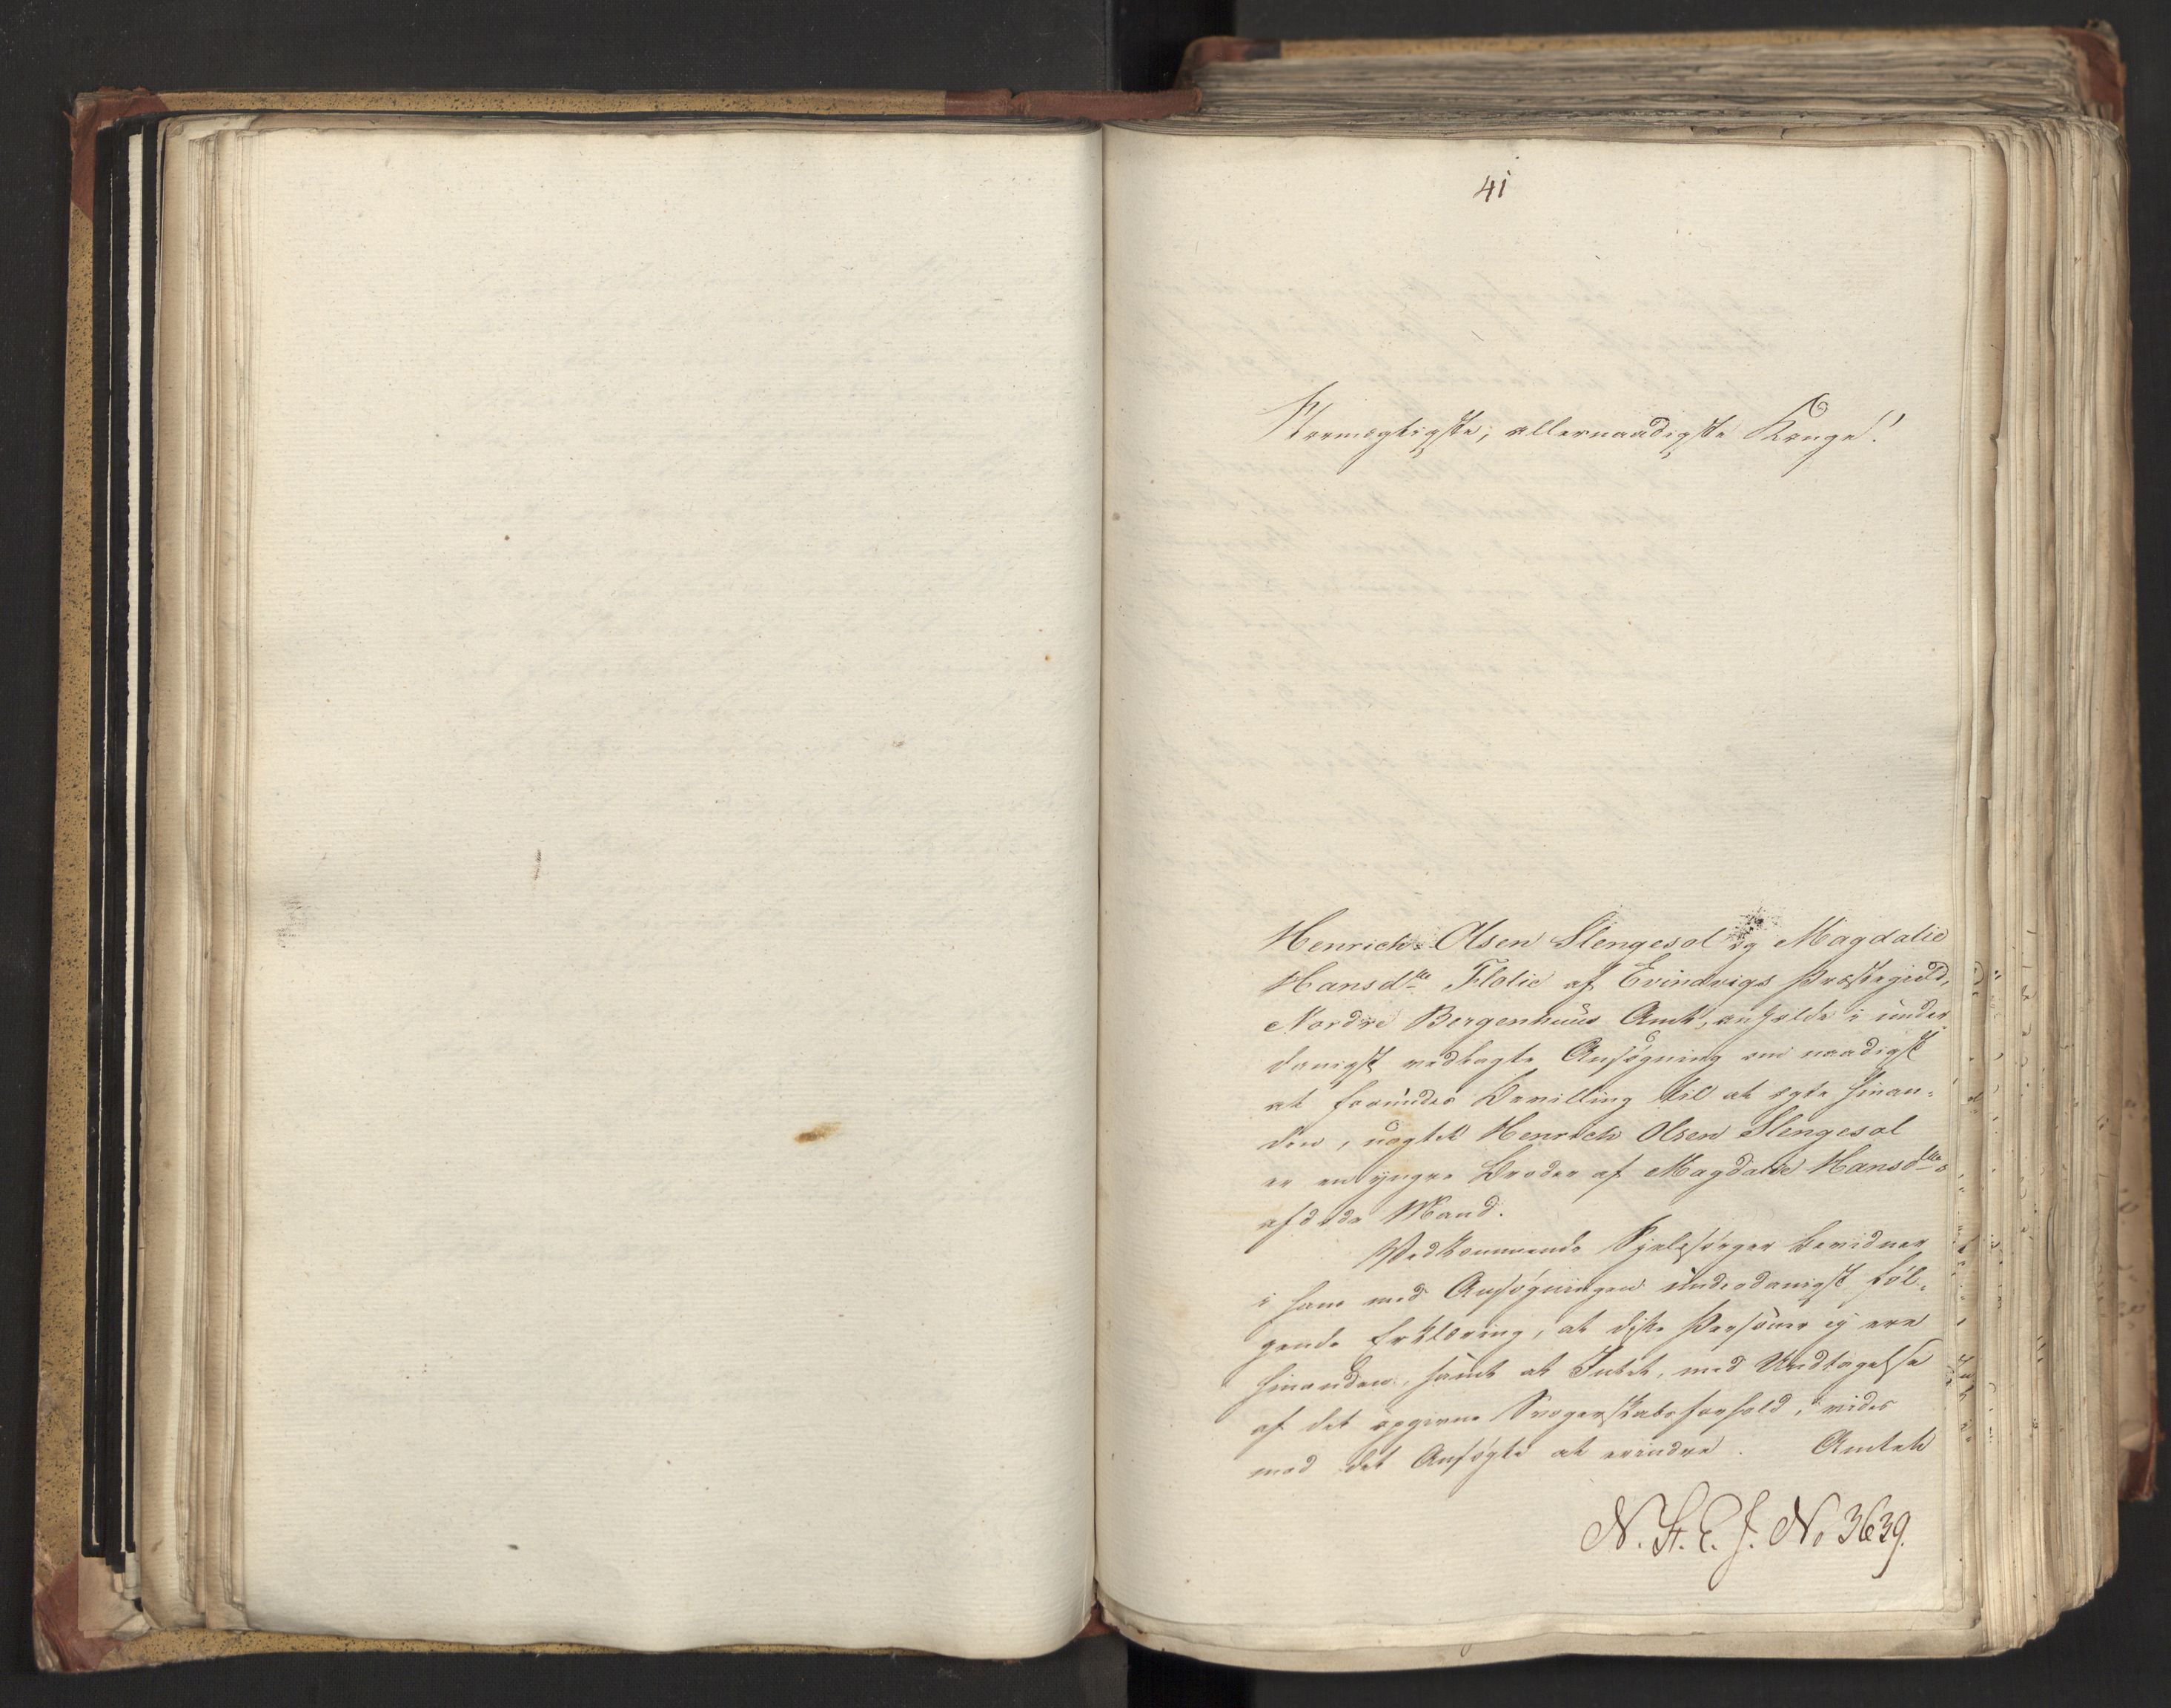 41
Stormægtigste, allernaadigste Konge!
Henrich Olsen Slengesol og Magdalie
Hansdtr Flolie af Evindvigs Præstegjeld,
Nordre Bergenhuus Amt, anholde i under
danigst vedlagte Ansøgning om naadigst
at forundes Bevilling til at egte hinan-
den, uagtet Henrich Olsen Slengesol
er en yngre Broder af Magdalie Hansdtrs
afdøde Mand.
Vedkommende Sjelesørger bevidner
i hans med Ansøgningen underdanigst føl-
gende Erklæring, at disse Personer ei ere
hinanden, samt at Intet, med Undtagelse
af det opgivne Svogerskabsforhold, vides
mod det Ansøgte at erindre. Amtet
N. St. E. J. No 3639.